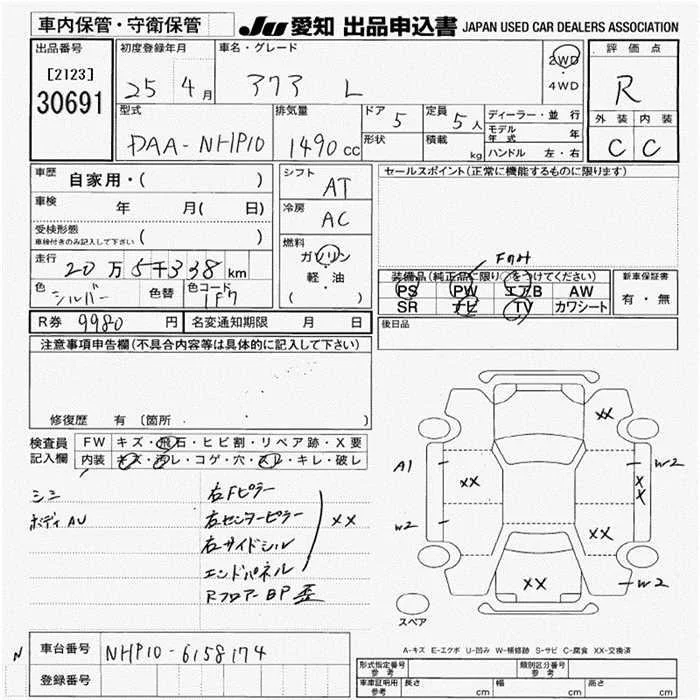 車内保管・守衛保管
JU 愛知 出品申込書 JAPAN USED CAR DEALERS ASSOCIATION
出品番号 初度登録年月 車名・グレード 評価点
[2123] 2WD
30691 25 4月 373 L ・ R
4WD
型式 排気量 ドア 5 定員 5人 ディーラー・並行 外装 内装
DAA-NHP10 1490cc 形状 積載 kg モデル年式 年 C C
ハンドル 左・右
車歴 自家用・( ) シフト AT セールスポイント(正常に機能するものに限ります)
車検 年 月( 日) 冷房 AC
受検形態
車検付きのみ記入して下さい ( ) 燃料
走行 20万5千338km ガソリン
・
軽・油
( )
色 シルバー 色替 色コード 1F7
Fのみ
装備品(純正品に限り○をつけてください) 新車保証書
PS PW エアB AW 有・無
SR ナビ TV カワシート
R券 9980円 名変通知期限 月 日 後日品
注意事項申告欄(不具合内容等は具体的に記入して下さい)
修復歴 有 〔箇所 〕
検査員 FW キズ・飛石・ヒビ割・リペア跡・X要
記入欄 内装 キズ・汚レ・コゲ・穴・スレ・キレ・破レ
シミ 右Fピラー
ボディAU 右センターピラー XX
右サイドシル
エンドパネル
RフロアーBP歪
XX
A1 XX W2
XX
W2 XX
XX W2
スペア
A-キズ E-エクボ U-凹み W-補修跡 S-サビ C-腐食 XX-交換済
N 車台番号 NHP10-6158174
登録番号
形式指定番号 参考 類別区分番号
車庫証明用 参考 長さ cm 幅 cm 高さ cm